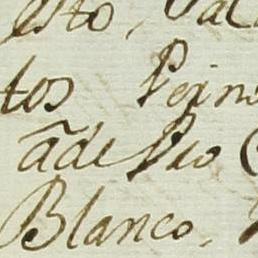 esto, Val
tos Pejn
ãde Pio
Blanco,